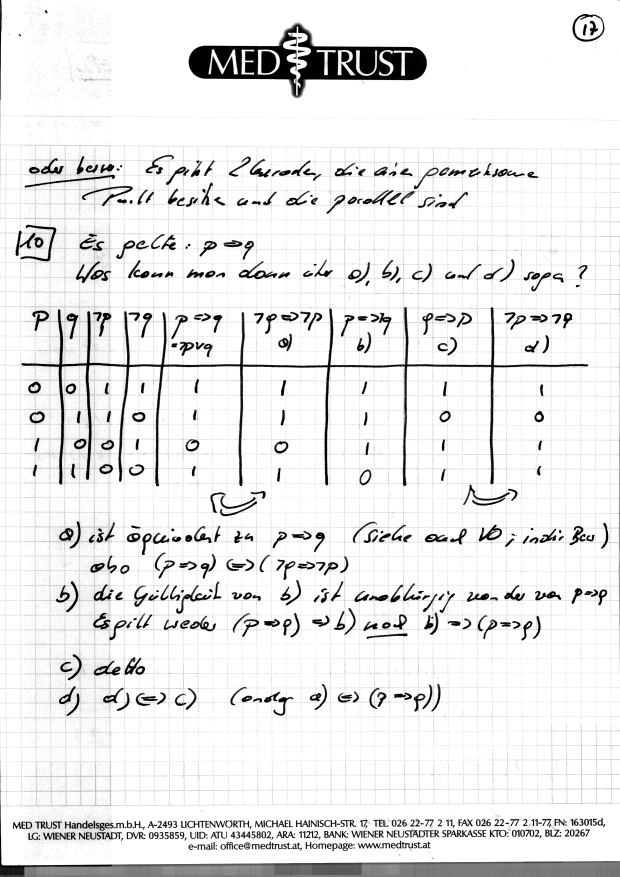 17
MED TRUST
oder besser: Es gibt 2 Geraden, die einen gemeinsame
Punkt besitzen und die parallel sind
10 Es gelte: p => q
Was kann man dann über a), b), c) und d) sagen?
p q ¬p ¬q p => q ¬q => ¬p p => ¬q q => p ¬p => ¬q
= ¬p v q a) b) c) d)
0 0 1 1 1 1 1 1 1
0 1 1 0 1 1 1 0 0
1 0 0 1 0 0 1 1 1
1 1 0 0 1 1 0 1 1
a) ist äquivalent zu p => q (siehe auch VO; indir Bew)
also (p => q) <=> (¬q => ¬p)
b) die Gültigkeit von b) ist unabhängig von der von p => q
Es gilt weder (p => q) => b) noch b) => (p => q)
c) detto
d) d) <=> c) (analog a) <=> (p => q))
MED TRUST Handelsges.m.b.H., A-2493 LICHTENWÖRTH, MICHAEL HAINISCH-STR. 17, TEL. 026 22-77 2 11, FAX 026 22-77 2 11-77, FN: 163015d,
LG: WIENER NEUSTADT, DVR: 0935859, UID: ATU 43445802, ARA: 11212, BANK: WIENER NEUSTÄDTER SPARKASSE KTO: 010702, BLZ: 20267
e-mail: office@medtrust.at, Homepage: www.medtrust.at